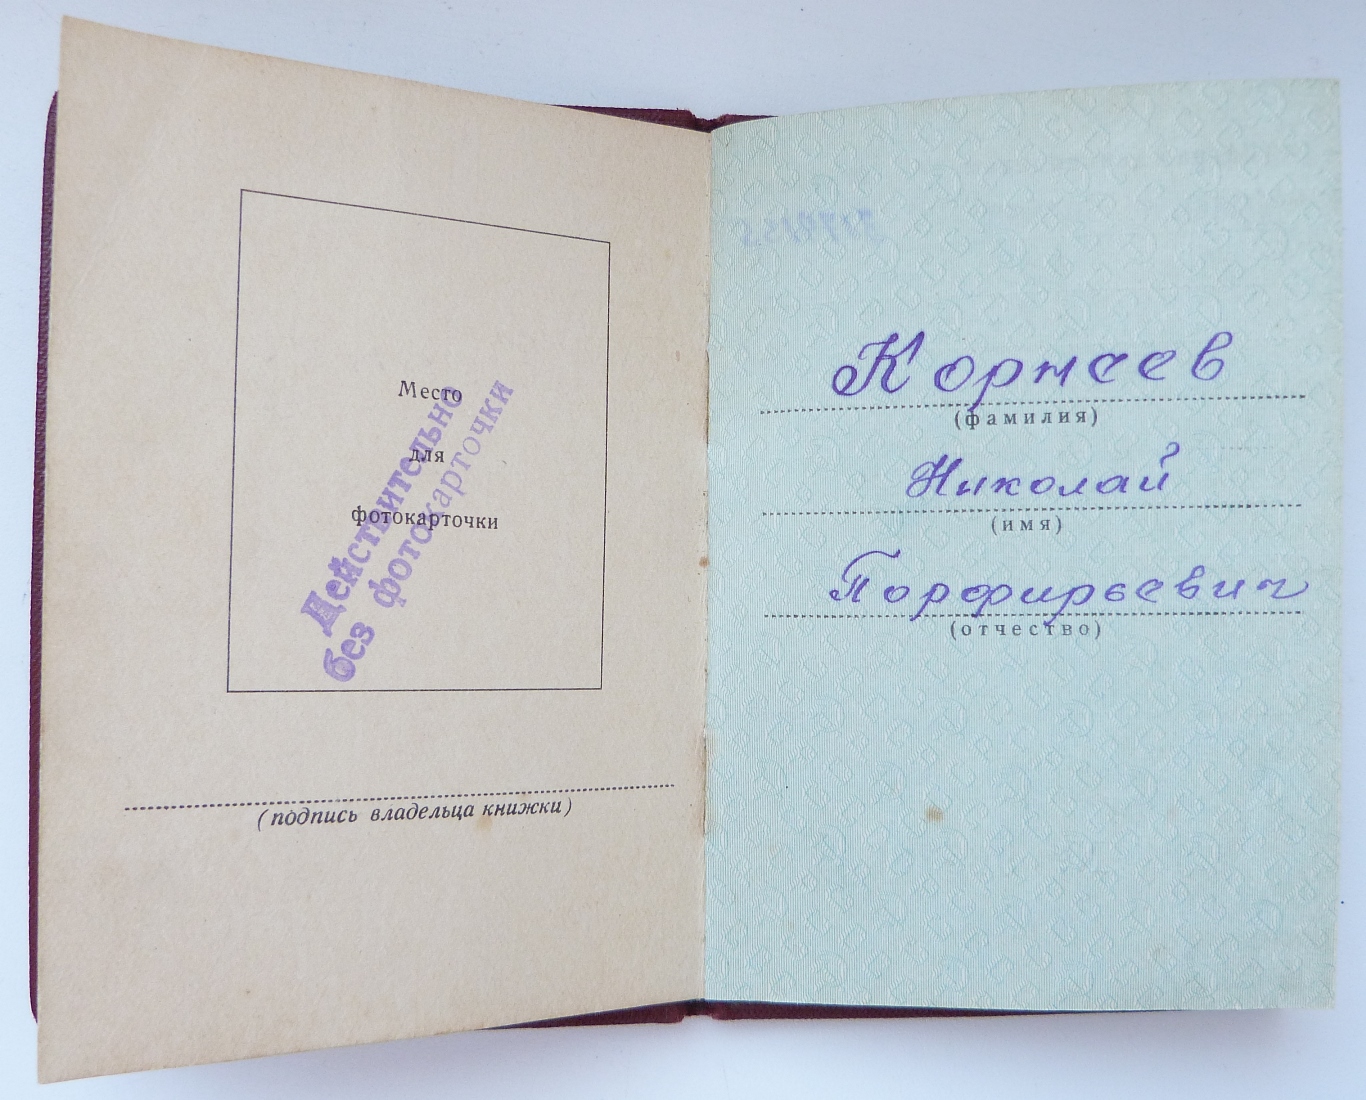 Место
для
фотокарточки
Действительно
без фотокарточки
(подпись владельца книжки)
Корнеев
(фамилия)
Николай
(имя)
Порфирьевич
(отчество)